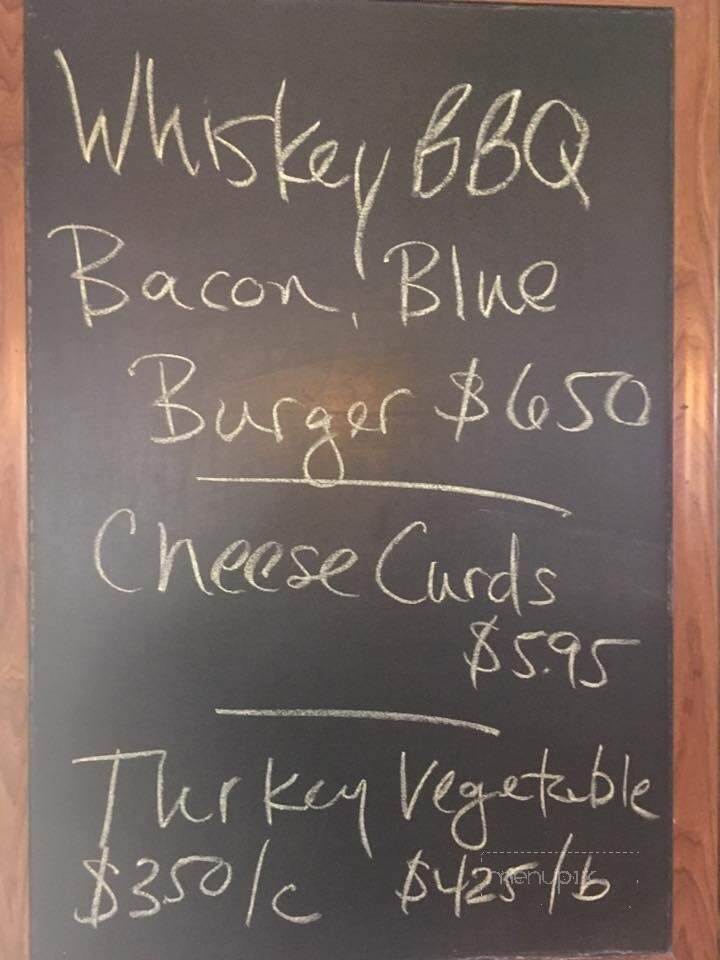 Whiskey BBQ
Bacon, Blue
Burger $650
Cheese Curds
$5.95
Turkey Vegetable
$350/c $425/b
menupix